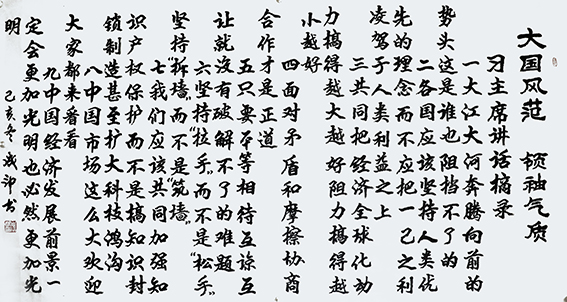 大国风范 领袖气质
习主席讲话摘录
一大江大河奔腾向前的
势头这是谁也阻挡不了的
二各国应该坚持人类优
先的理念而不应把一己之利
凌驾于人类利益之上
三共同把经济全球化动
力搞得越大越好阻力搞得越
小越好
四面对矛盾和摩擦协商
合作才是正道
五只要平等相待互谅互
让就没有破解不了的难题
六坚持"拉手"而不是"松手"
坚持"拆墙"而不是"筑墙"
七我们应该共同加强知
识产权保护而不是搞知识封
锁制造甚至扩大科技鸿沟
八中国市场这么大欢迎
大家都来看看
九中国经济发展前景一
定会更加光明也必然更加光
明
己亥冬
书